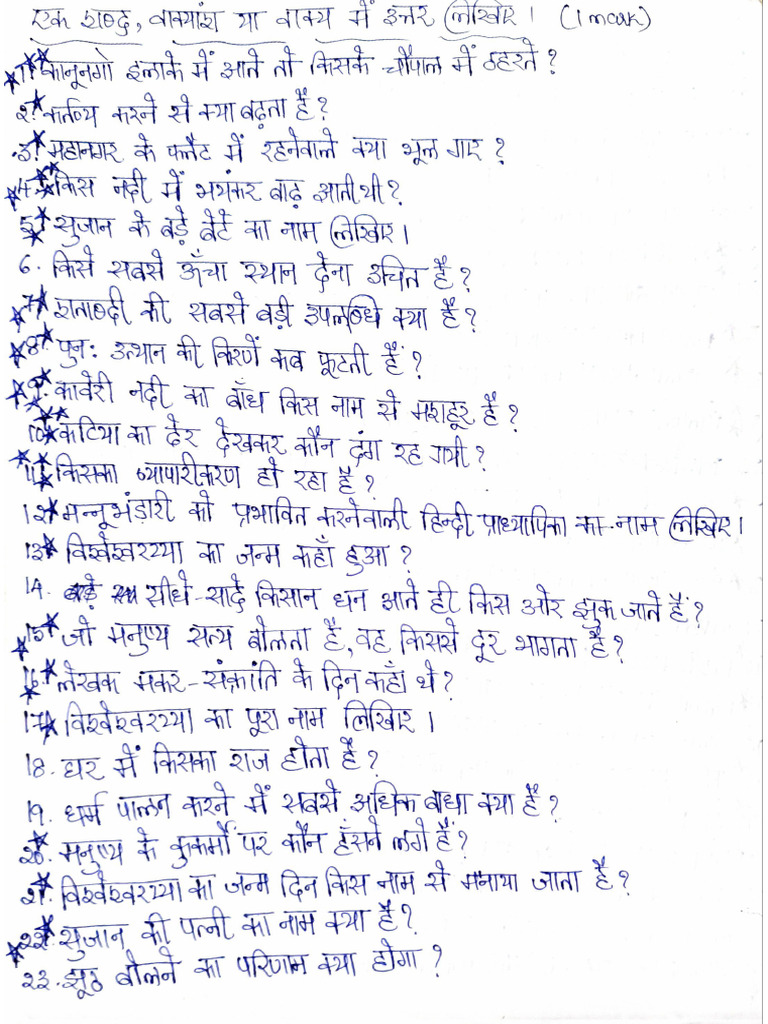 एक शब्द, वाक्यांश या वाक्य में उत्तर लिखिए। (1 mark)
1. कानूनगो इलाके में आते तो किसके चौपाल में ठहरते?
2. कर्तव्य करने से क्या बढ़ता है?
3. महानगर के फ्लैट में रहनेवाले क्या भूल गए?
4. किस नदी में भयंकर बाढ़ आती थी?
5. सुजान के बड़े बेटे का नाम लिखिए।
6. किसे सबसे ऊँचा स्थान देना उचित है?
7. शताब्दी की सबसे बड़ी उपलब्धि क्या है?
8. पुनः उत्थान की किरणें कब फूटती हैं?
9. कावेरी नदी का बाँध किस नाम से मशहूर है?
10. कटिया का ढेर देखकर कौन दंग रह गयी?
11. किसका व्यापारीकरण हो रहा है?
12. मन्नू भंड़ारी को प्रभावित करनेवाली हिन्दी प्राध्यापिका का नाम लिखिए।
13. विश्वेश्वरय्या का जन्म कहाँ हुआ?
14. सीधे-सादे किसान धन आते ही किस ओर झुक जाते हैं?
15. जो मनुष्य सत्य बोलता है, वह किससे दूर भागता है?
16. लेखक मकर-संक्रांति के दिन कहाँ थे?
17. विश्वेश्वरय्या का पूरा नाम लिखिए।
18. घर में किसका राज होता है?
19. धर्म पालन करने में सबसे अधिक बाधा क्या है?
20. मनुष्य के कुकर्मों पर कौन हँसने लगे हैं?
21. विश्वेश्वरय्या का जन्म दिन किस नाम से मनाया जाता है?
22. सुजान की पत्नी का नाम क्या है?
23. झूठ बोलने का परिणाम क्या होगा?